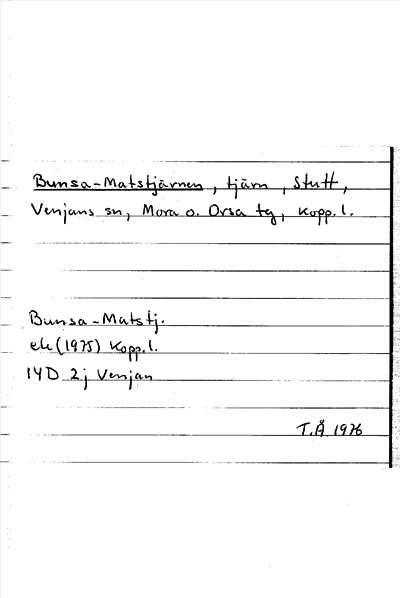 Bunsa-Matstjärnen, tjärn, Stutt,
Venjans sn, Mora o. Orsa tg, Kopp. l.
Bunsa-Matstj.
ek (1975) Kopp. l.
14D 2j Venjan
T.Å 1976